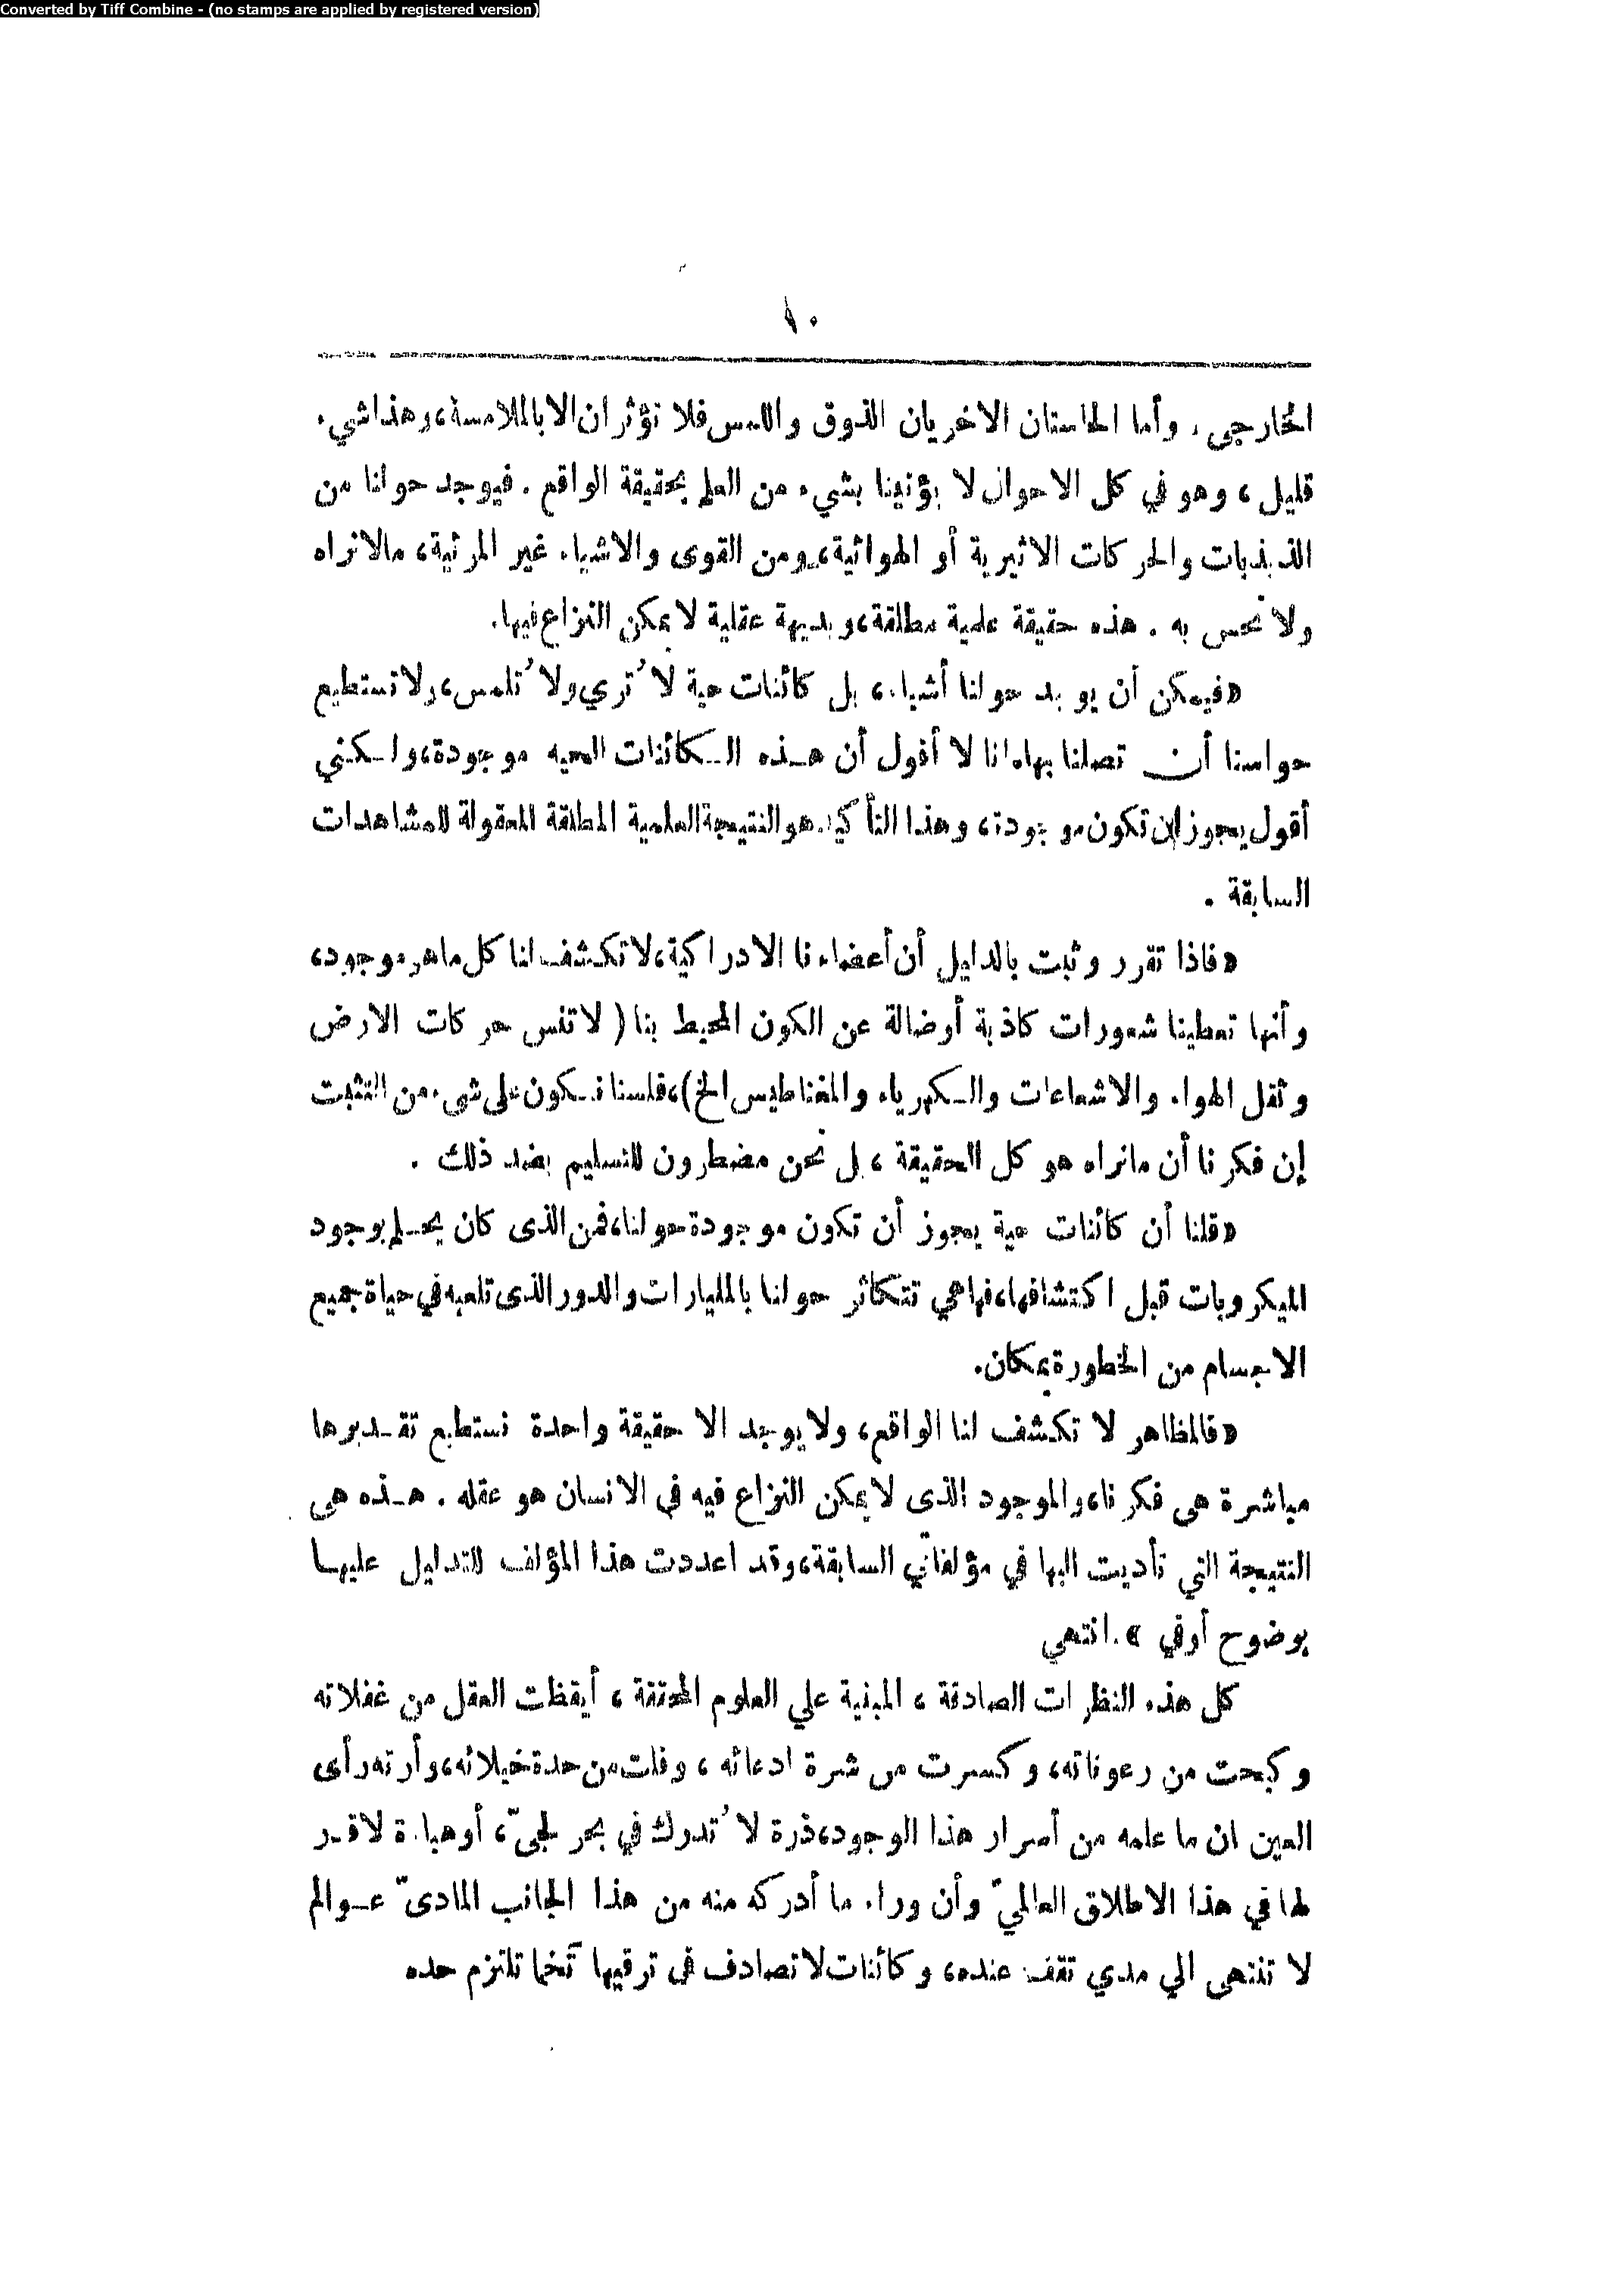 Converted by Tiff Combine - (no stamps are applied by registered version)
١٠
الخارجى. وأما الحاستان الاخريان الذوق واللمس فلا تؤثران الا بالملامسة، وهذا شيء
قليل، وهو في كل الاحوال لا يؤتينا بشيء من العلم بحقيقة الواقع. فيوجد حولنا من
الذبذبات والحركات الاثيرية أو الهوائية، ومن القوى والاشياء غير المرئية، مالا نراه
ولا نحس به. هذه حقيقة علمية مطلقة، وبديهة عقلية لا يمكن النزاع فيها.
«فيمكن أن يوجد حولنا أشياء، بل كائنات حية لا تُري ولا تُلمس، ولا تستطيع
حواسنا أن تصلنا بها. انا لا أقول أن هذه الكائنات الحيه موجودة، ولكني
أقول يجوز ان تكون موجودة، وهذا التأكيد هو النتيجة العلمية المطلقة المعقولة للمشاهدات
السابقة.
«فاذا تقرر وثبت بالدليل أن أعضاءنا الادراكية، لا تكشف لنا كل ماهو موجود،
وأنها تعطينا شعورات كاذبة أوضالة عن الكون المحيط بنا (لا تنس حركات الارض
وثقل الهواء والاشعاعات والكهرباء والمغناطيس الخ)، فلسنا نكون على شىء من التثبت
إن فكرنا أن مانراه هو كل الحقيقة، بل نحن مضطرون للتسليم بضد ذلك.
«قلنا أن كائنات حية يجوز أن تكون موجودة حولنا، فمن الذى كان يحلم بوجود
الميكروبات قبل اكتشافها، فهاهي تتكاثر حولنا بالمليارات والدور الذى تلعبه في حياة جميع
الاجسام من الخطورة بمكان.
«فالمظاهر لا تكشف لنا الواقع، ولا يوجد الا حقيقة واحدة نستطيع تقديرها
مباشرة هى فكرنا، والموجود الذى لا يمكن النزاع فيه فى الانسان هو عقله. هذه هى
النتيجة التي تأديت اليها في مؤلفاتي السابقة، وقد اعددت هذا المؤلف للتدليل عليها
بوضوح أوفي». انتهي
كل هذه النظرات الصادقة، المبنية علي العلوم المحققة، أيقظت العقل من غفلاته
وكبحت من رعوناته، وكسرت من شرة ادعائه، وفلت من حدة خيلائه، وأرته رأى
العين ان ما علمه من أسرار هذا الوجود، ذرة لا تُدرك في بحر لجىّ، أو هباءة لا قدر
لها في هذا الاطلاق العالميّ وأن وراء ما أدركه منه من هذا الجانب المادىّ عوالم
لا تنتهى الي مدي تقف عنده، وكائنات لا تصادف فى ترقيها تخما تلتزم حده